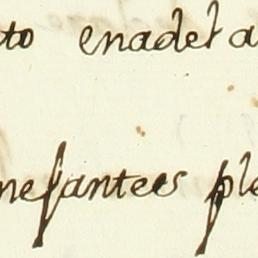 to enadela
nesantees ple